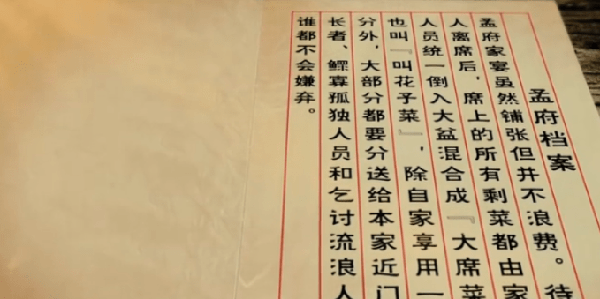 孟府档案
孟府家宴虽然铺张但并不浪费。待
人离席后，席上的所有剩菜都由家
人员统一倒入大盆混合成『大席菜
也叫『叫花子菜』，除自家享用一
分外，大部分都要分送给本家近门
长者、鳏寡孤独人员和乞讨流浪人
谁都不会嫌弃。